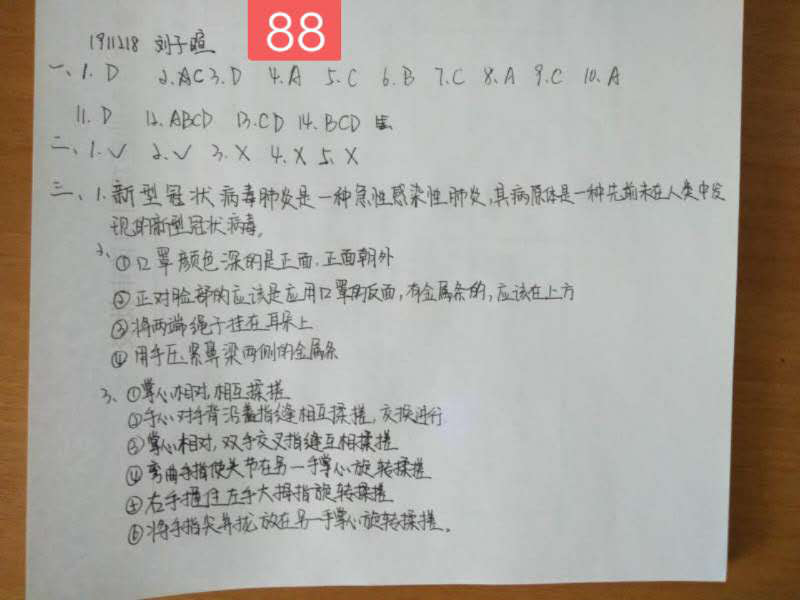 88
1911218 刘子暄
一、1. D 2. AC 3. D 4. A 5. C 6. B 7. C 8. A 9. C 10. A
11. D 12. ABCD 13. CD 14. BCD
二、1. ✓ 2. ✓ 3. X 4. X 5. X
三、1. 新型冠状病毒肺炎是一种急性感染性肺炎,其病原体是一种先前未在人类中发
现的新型冠状病毒。
2、①口罩颜色深的是正面,正面朝外
②正对脸部的应该是应用口罩的反面,有金属条的,应该在上方
③将两端绳子挂在耳朵上
④用手压紧鼻梁两侧的金属条
3、①掌心相对,相互揉搓
②手心对手背沿着指缝相互揉搓,交换进行
③掌心相对,双手交叉指缝互相揉搓
④弯曲手指使关节在另一手掌心旋转揉搓
⑤右手握住左手大拇指旋转揉搓
⑥将手指尖并拢放在另一手掌心旋转揉搓。